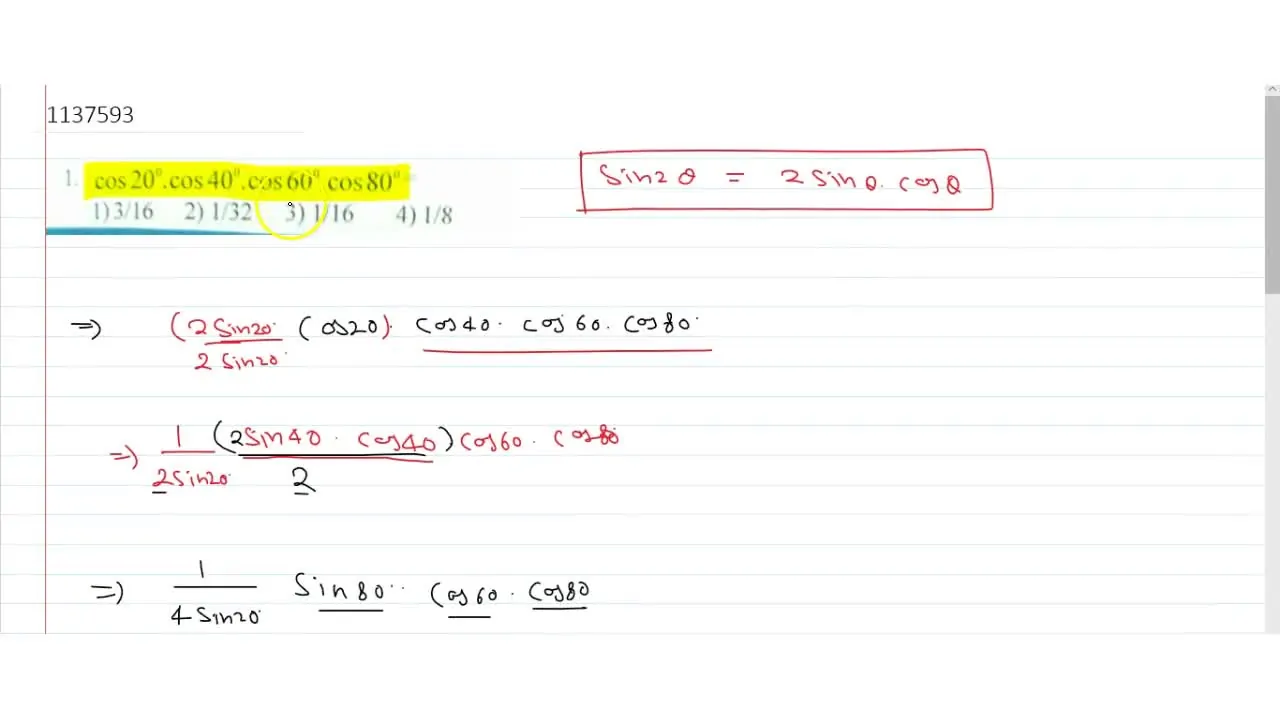 1137593
1. cos 20°.cos 40°.cos 60°.cos 80° =
1) 3/16 2) 1/32 3) 1/16 4) 1/8
Sin2θ = 2 Sinθ. cosθ
=) (2 Sin20 / 2 Sin20 (cos20). cos40. cos60. cos80.
=) 1 / 2Sin20 (2Sin40. cos40) / 2 cos60. cos80
=) 1 / 4 Sin20 Sin80. cos60. cos80